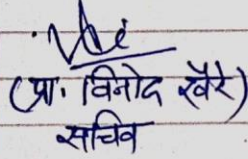 (प्रा. विनोद खैरे)
सचिव